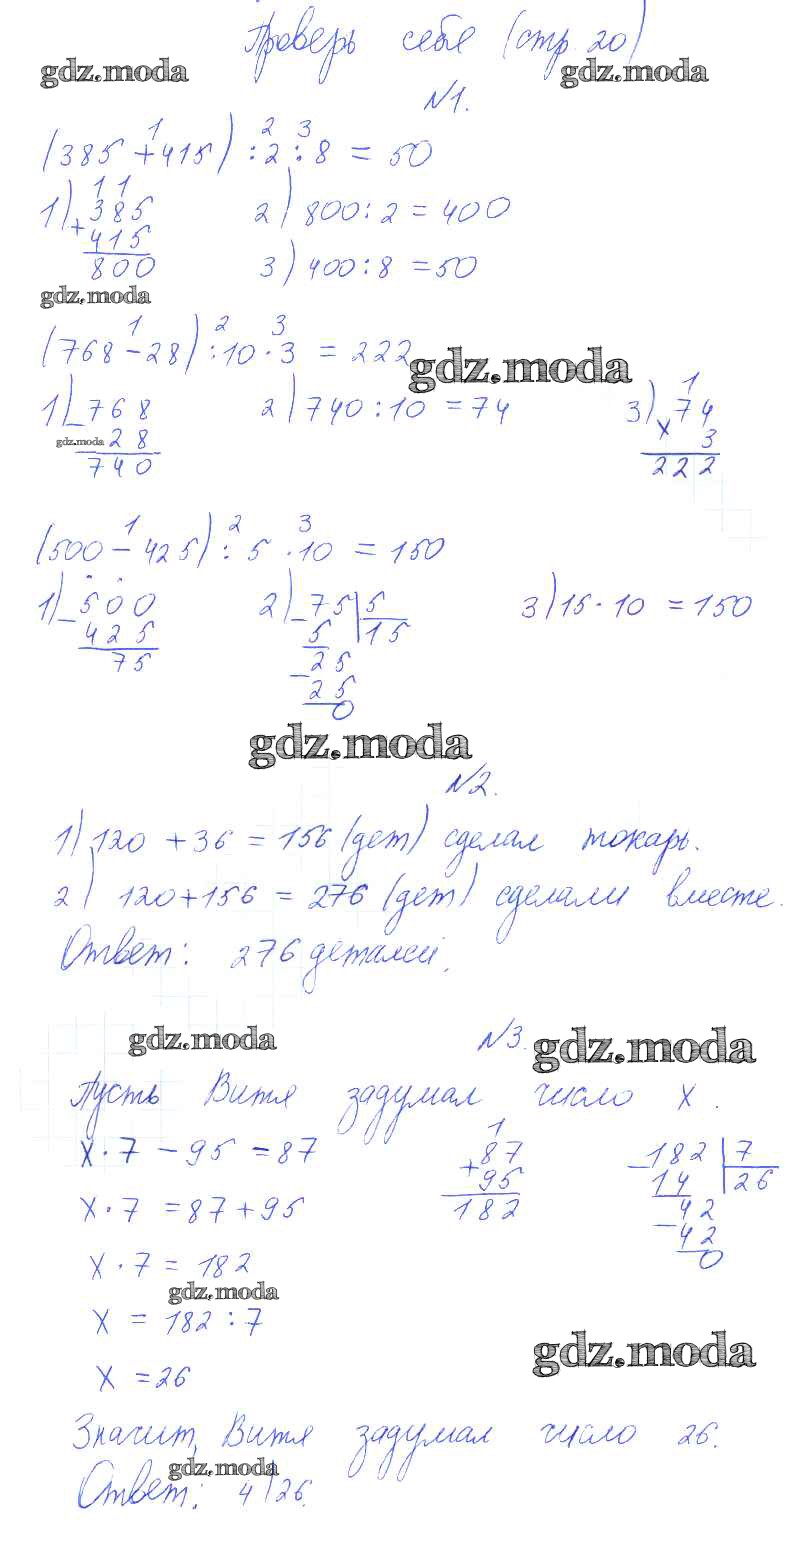 Проверь себя (стр. 20)
gdz.moda gdz.moda
№1.
1 2 3
(385 + 415) : 2 : 8 = 50
1 1
1) 385 2) 800 : 2 = 400
+ 415
800 3) 400 : 8 = 50
gdz.moda
1 2 3
(768 - 28) : 10 · 3 = 222
gdz.moda
1
1) _ 768 2) 740 : 10 = 74 3) 74
gdz.moda 28 x 3
740 222
1 2 3
(500 - 425) : 5 · 10 = 150
1) _ 500 2) _ 75 | 5 3) 15 · 10 = 150
425 5 15
75 _ 25
25
0
gdz.moda
№2.
1) 120 + 36 = 156 (дет) сделал токарь.
2) 120 + 156 = 276 (дет) сделали вместе.
Ответ: 276 деталей.
gdz.moda №3. gdz.moda
Пусть Витя задумал число x.
x · 7 - 95 = 87
1
+ 87 _ 182 | 7
95 14 26
x · 7 = 87 + 95
182 _ 42
42
0
x · 7 = 182
gdz.moda
x = 182 : 7
gdz.moda
x = 26
Значит, Витя задумал число 26.
gdz.moda
Ответ: 4) 26.